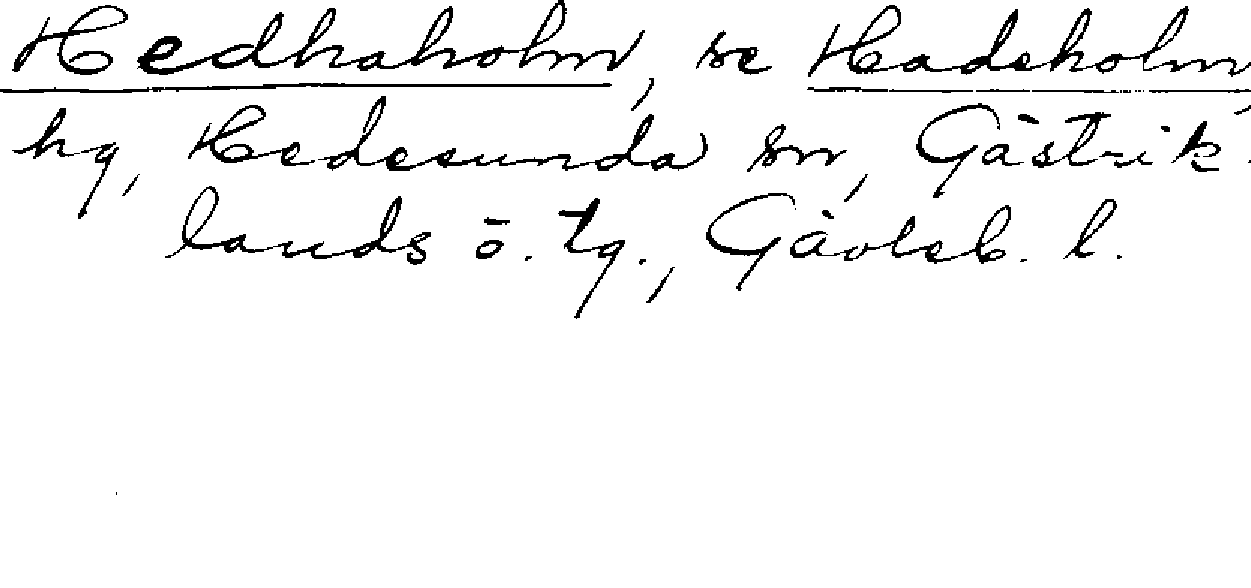 Hedhaholm, se Hadeholm,
hg, Hedesunda sn, Gästrik-
lands ö. tg., Gävleb. l.